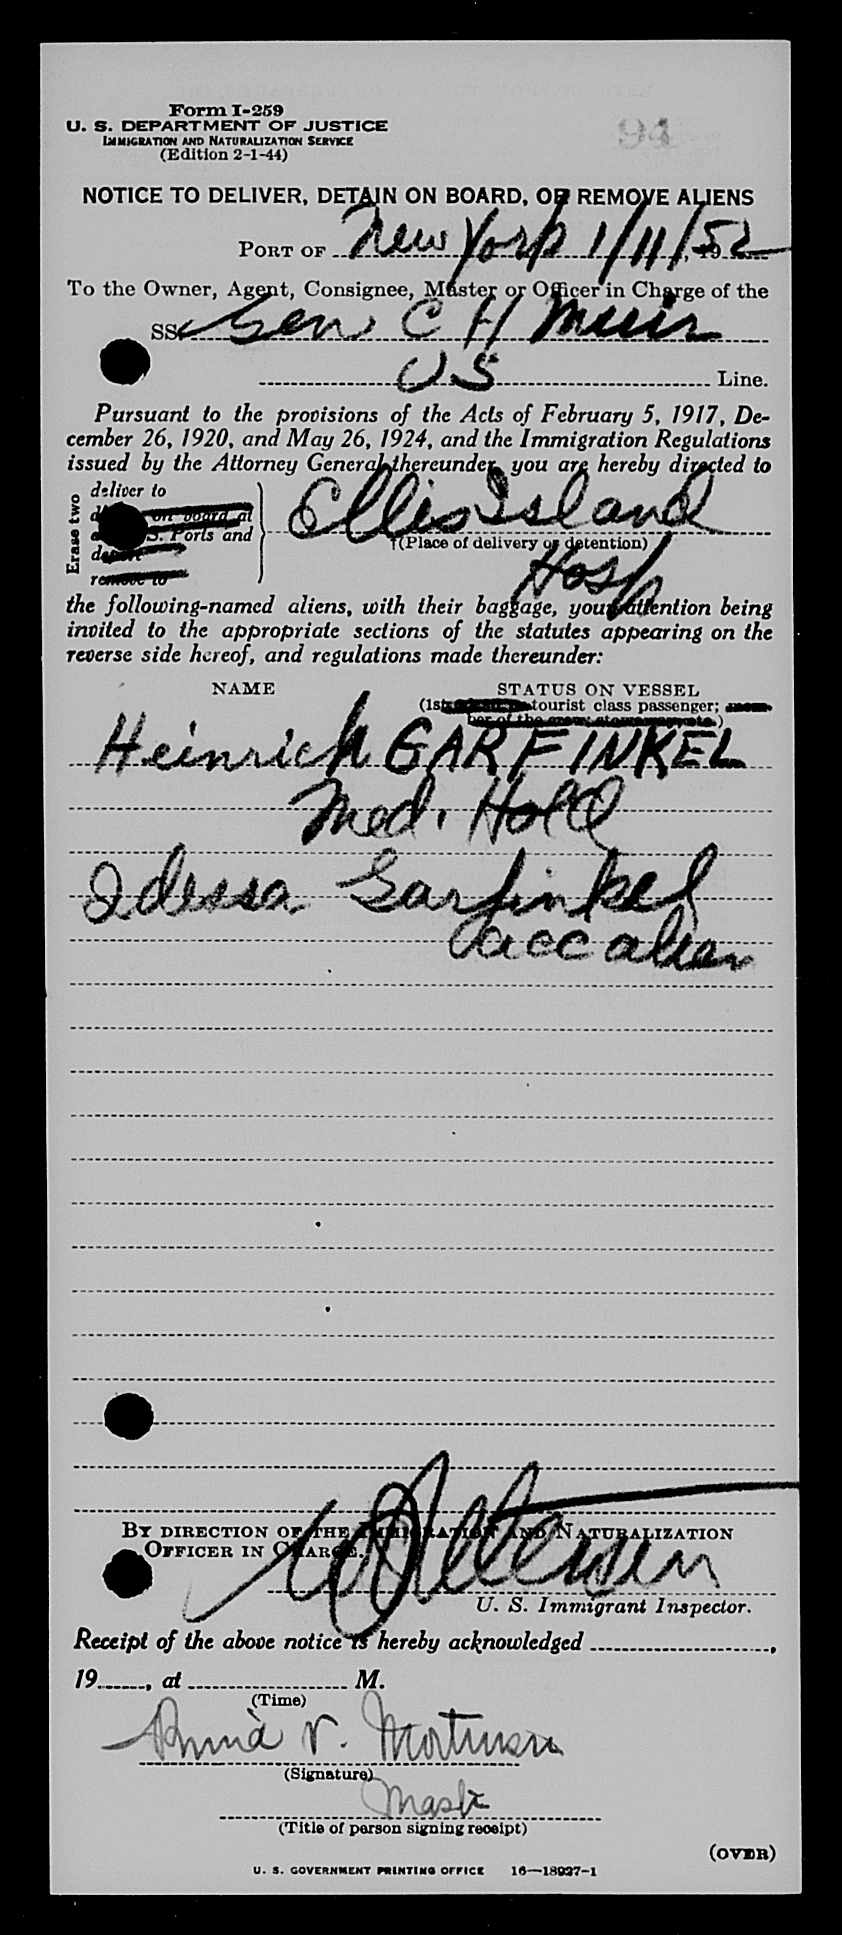 Form I-259
U. S. DEPARTMENT OF JUSTICE
IMMIGRATION AND NATURALIZATION SERVICE
(Edition 2-1-44)
94
NOTICE TO DELIVER, DETAIN ON BOARD, OR REMOVE ALIENS
PORT OF New York 1/11/52, 19
To the Owner, Agent, Consignee, Master or Officer in Charge of the
SS Gen C H Muir
US Line.
Pursuant to the provisions of the Acts of February 5, 1917, De-
cember 26, 1920, and May 26, 1924, and the Immigration Regulations
issued by the Attorney General thereunder, you are hereby directed to
Erase two
deliver to
on board at
U. S. Ports and
remove to
Ellis Island
†(Place of delivery or detention)
Hosp
the following-named aliens, with their baggage, your attention being
invited to the appropriate sections of the statutes appearing on the
reverse side hereof, and regulations made thereunder:
NAME STATUS ON VESSEL
(1st tourist class passenger; mem-
ber of the crew, stowaway, etc.)
Heinrich GARFINKEL
Med. Hold
Idessa Garfinkel
acc alien
BY DIRECTION OF THE IMMIGRATION AND NATURALIZATION
OFFICER IN CHARGE.
U. S. Immigrant Inspector.
Receipt of the above notice is hereby acknowledged ,
19 , at M.
(Time)
V.
(Signature)
(Title of person signing receipt)
(OVER)
U. S. GOVERNMENT PRINTING OFFICE 16—18927-1